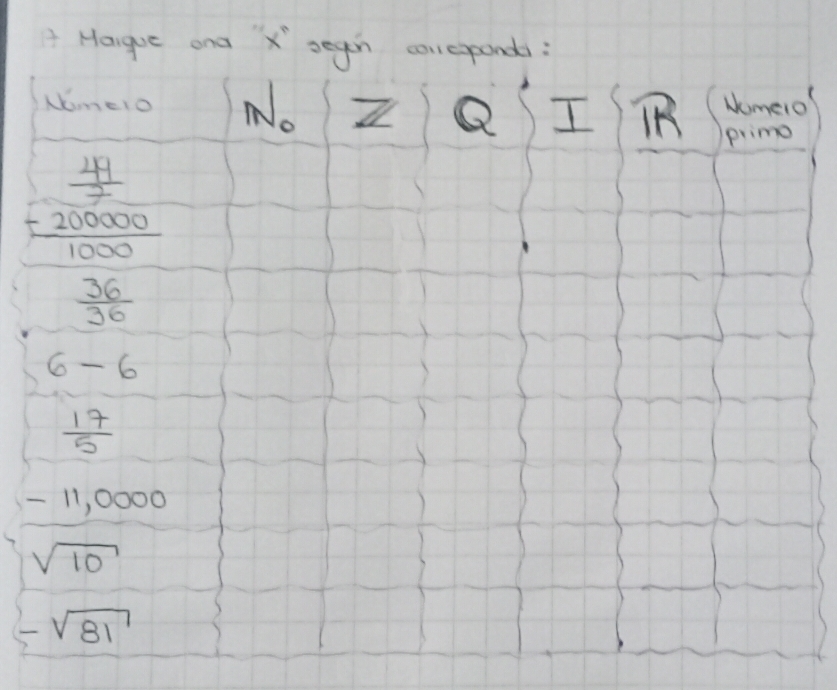 Marque una "x" según corresponda:
Número | N₀ | Z | Q | I | R | Número primo
49/7
-200000/1000
36/36
6 - 6
17/5
- 11,0000
√10
- √81